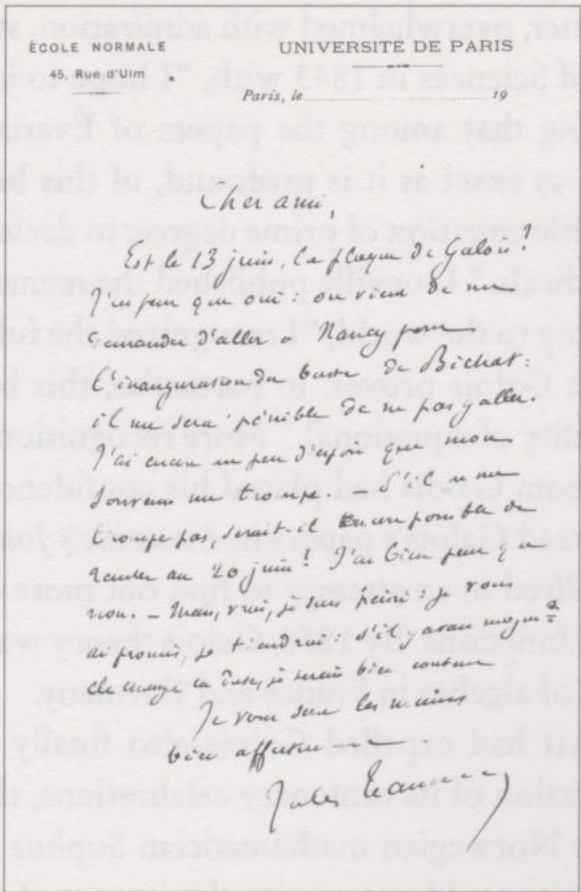 ÉCOLE NORMALE
45, Rue d'Ulm
UNIVERSITÉ DE PARIS
Paris, le 19
Cher ami,
Est-ce le 13 juin, la plaque de Galois?
J'ai peur que oui: on vient de me
demander d'aller à Nancy pour
l'inauguration du buste de Bichat.
il me sera pénible de ne pas y aller.
J'ai encore un peu d'espoir que mon
souvenir me trompe. S'il ne me
trompe pas, serait-il encore possible de
reculer au 20 juin? J'ai bien peur que
non. – Mais, vrai, je suis peiné. Je vous
ai promis, je tiendrai: s'il y avait moyen
de changer la date, je serais bien content
Je vous serre les mains
bien affectueusement
Jules Tannery